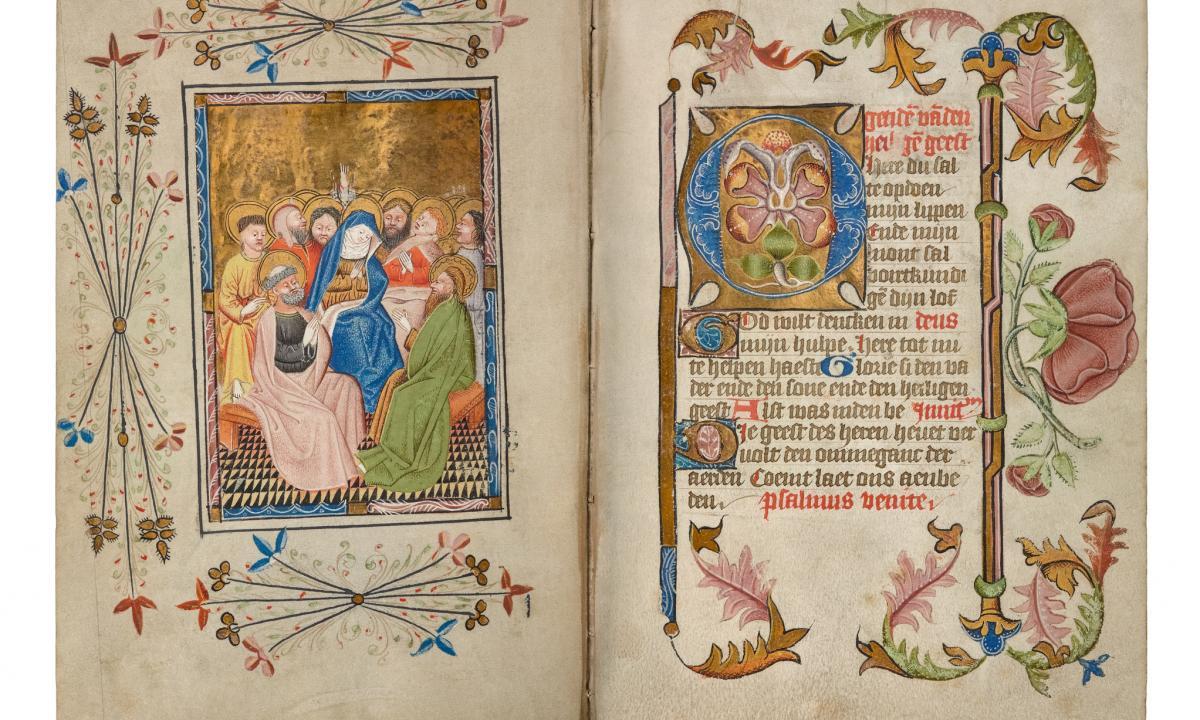 gende vādē
hei gē geest
Here du sal
te opdoen
mijn lypen
Ende mijn
mont sal
vortkundi
gē dijn lof
God wilt dencken in deus
mijn hulpe. Here tot mi
te helpen haeste Glorie si den va
der ende den sone ende den heiligen
geest Alst was inden be
Die geest des heren hevet ver
volt den ommegant der
aerien Coemt laet ons aenbe
den. psalmus venite.